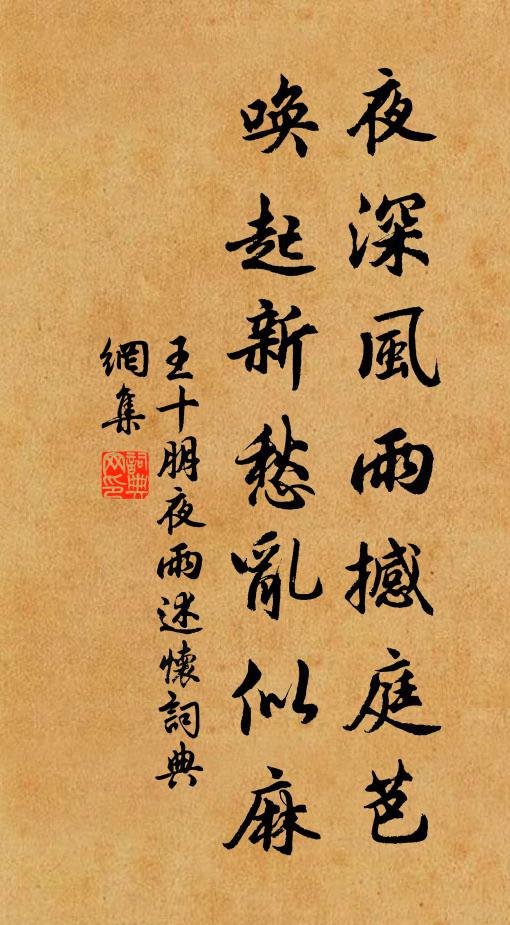 夜深風雨撼庭芭
喚起新愁亂似麻
王十朋夜雨述懷詞典
網集
詞典
网印